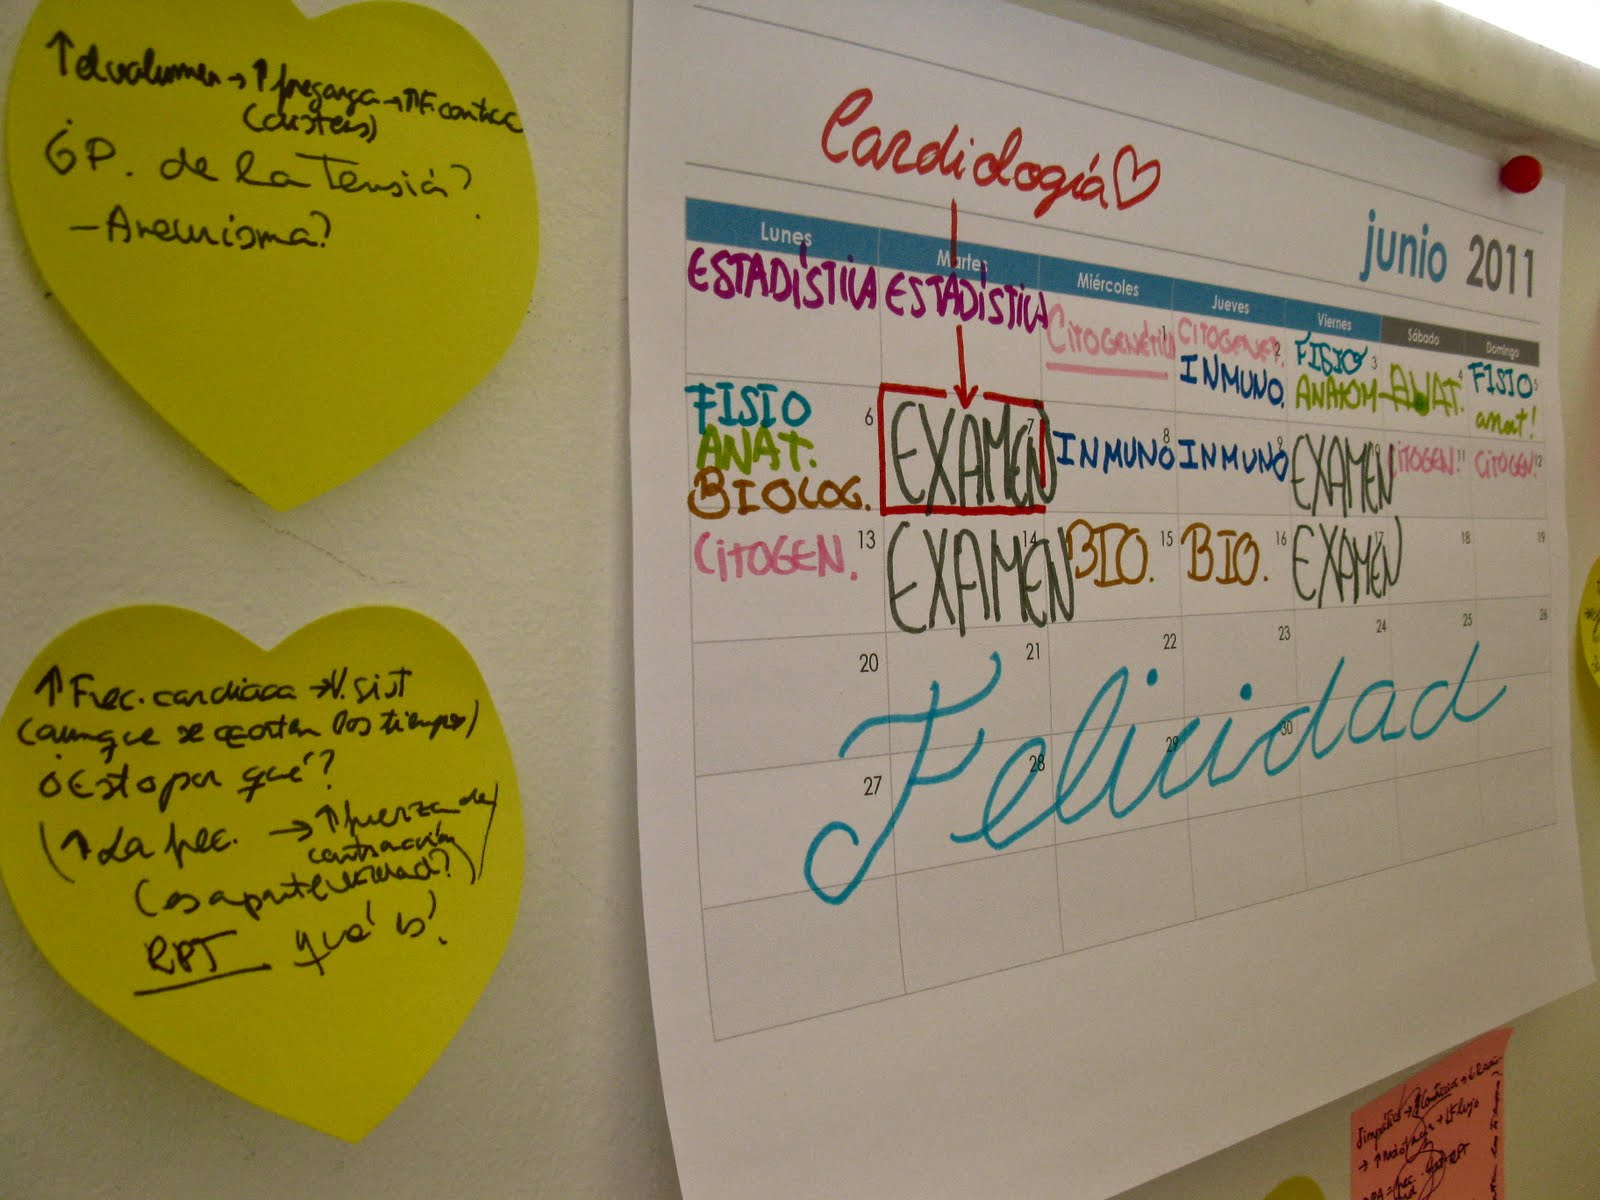 ↑ el volumen → ↑ pregarga → ↑ F. contrac
¿P. de la Tensiá?
- Aneurisma?
↑ Frec. cardiaca → V. sist
(aunque se acorten los tiempos)
¿Esto por qué?
(↑ La frec. → ↑ fuerza de
contracción
RPT qué es?
Cardiologíá♡
junio 2011
Lunes Martes Miércoles Jueves Viernes Sábado Domingo
ESTADÍSTICA ESTADÍSTICA
1 CITOGENÉTICA
2 CITOGENET.
INMUNO.
3 FISIO
ANATOM-
4 ANAT.
5 FISIO
anat!
6 FISIO
ANAT.
BIOLOG.
7 EXAMEN
8 INMUNO
9 INMUNO
10 EXAMEN
11 CITOGEN.
12 CITOGEN.
13 CITOGEN.
14 EXAMEN
15 BIO.
16 BIO.
17 EXAMEN
18 19
20 21 22 23 24 25 26
27 28 29 30
Felicidad